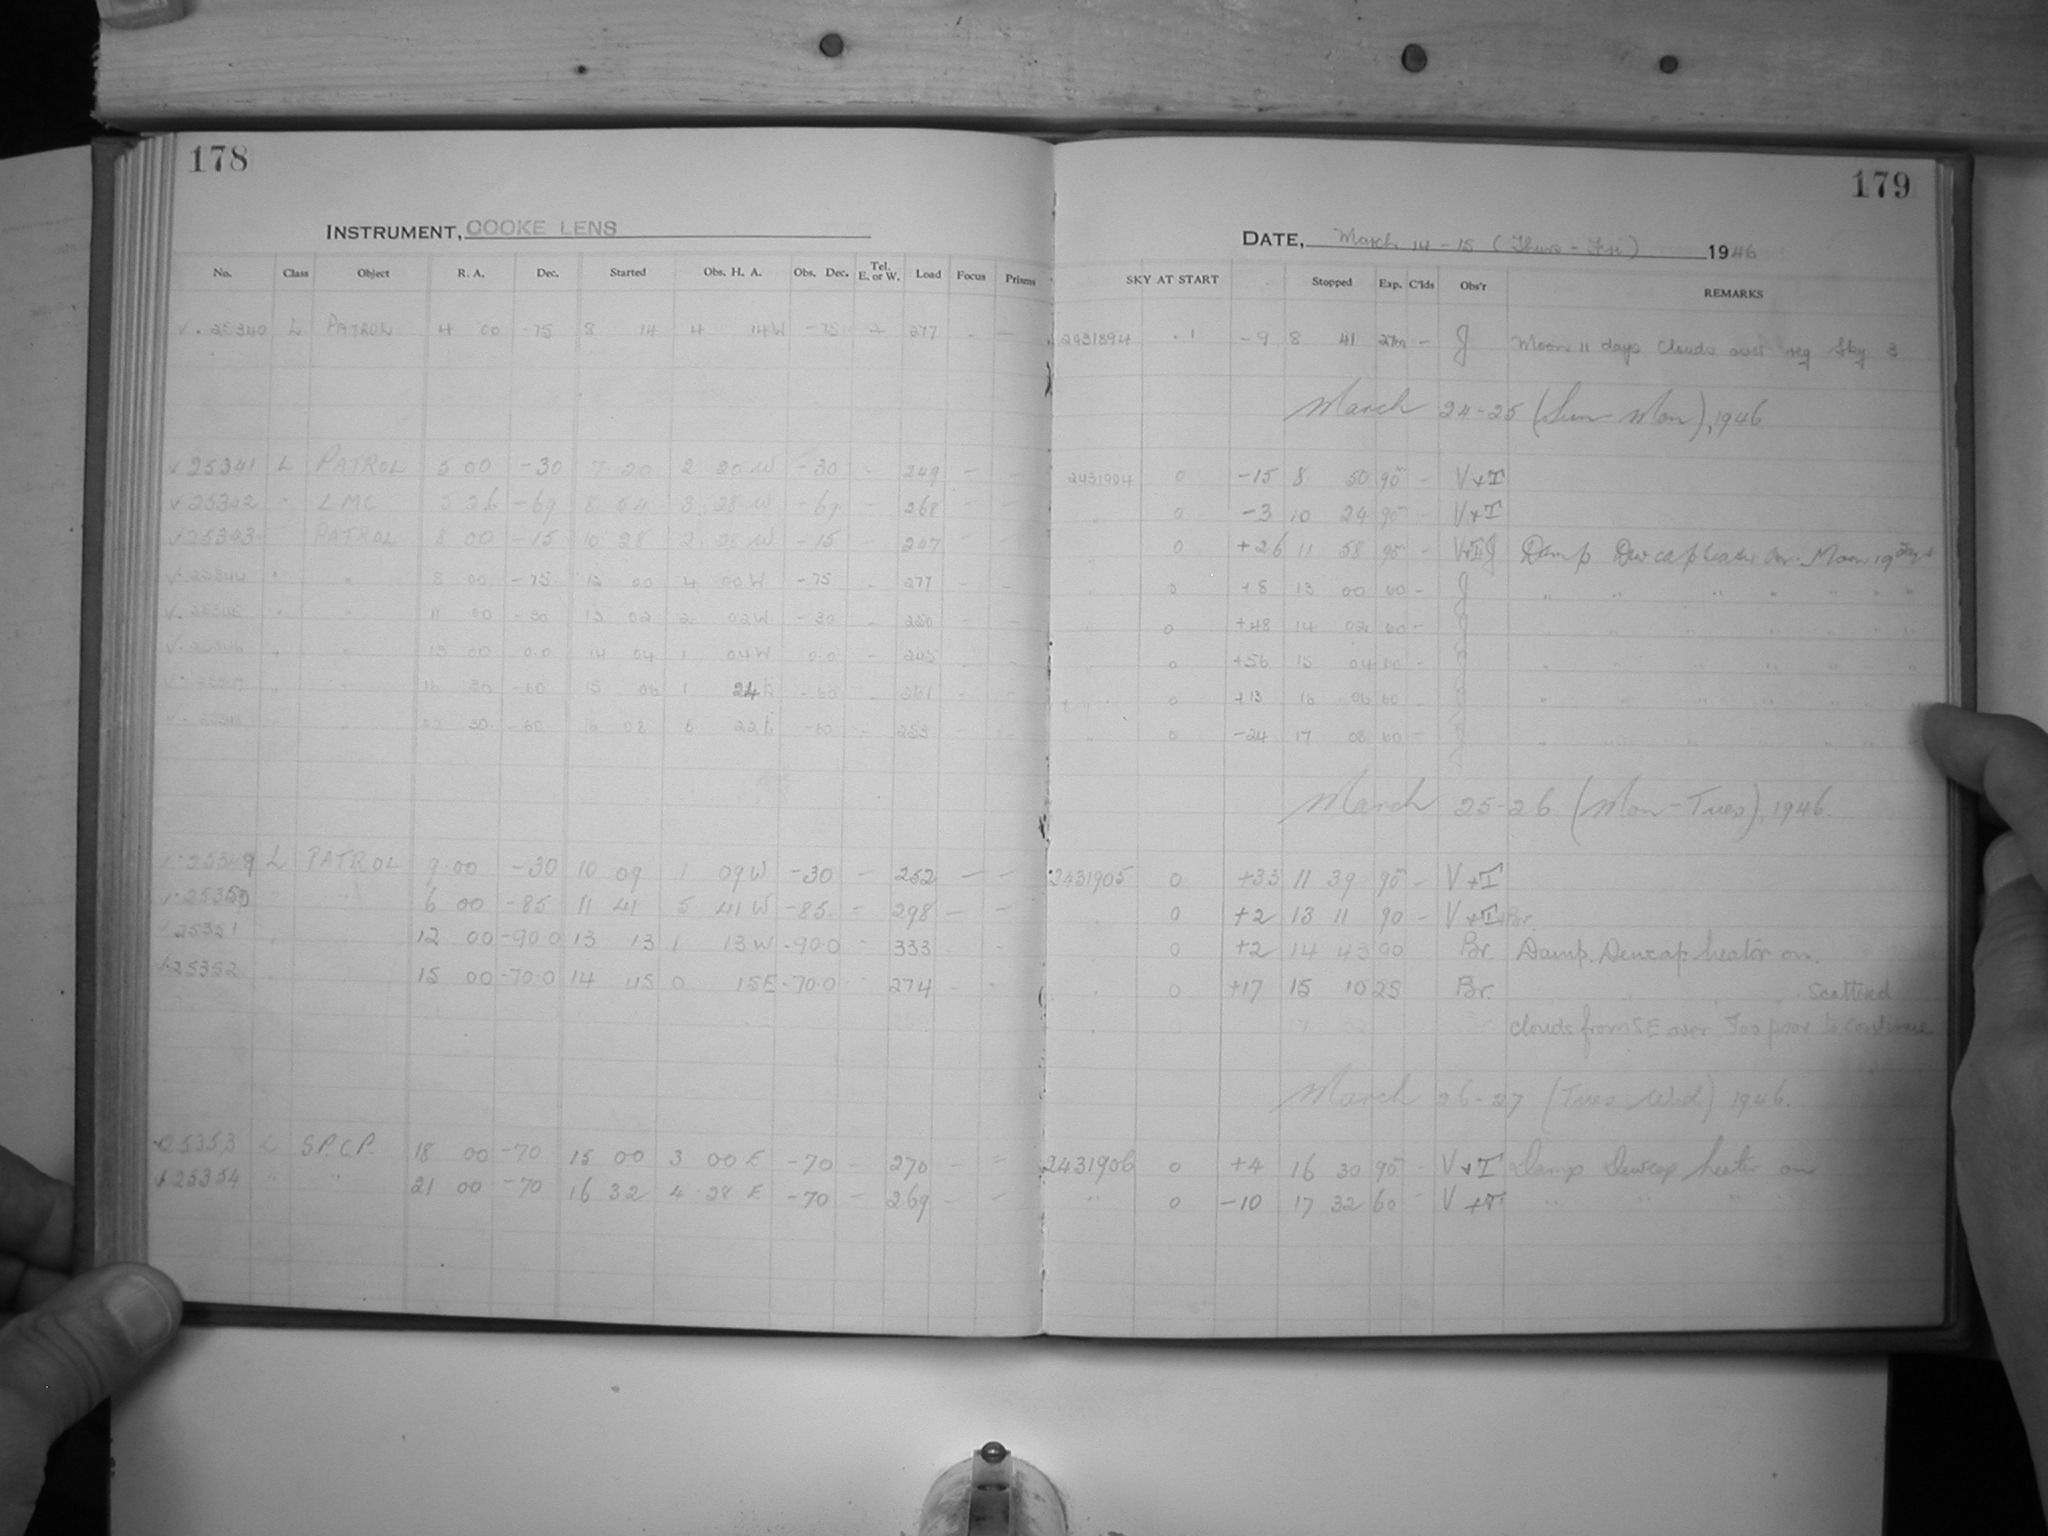 178
INSTRUMENT, COOKE LENS
No. Class Object R. A. Dec. Started Obs. H. A. Obs. Dec. Tel. E. or W. Load Focus Prisms
25340 L PATROL 4 00 -75 8 14 4 14W -75 277 - -
25341 L PATROL 5 00 -30 7 20 2 20 W -30 - 249 - -
25342 " LMC 5 26 -69 8 54 3 28 W -69 - 268 - -
25343 PATROL 8 00 -15 10 28 2 28 W -15 247 - -
25344 " " 8 00 -75 12 00 4 00W -75 - 277 - -
25345 " " 11 00 -30 13 02 2 02W -30 - 250 - -
25346 " " 13 00 0.0 14 04 1 04W 0.0 - 245 - -
25347 " " 16 30 -60 15 06 1 24E -60 - 261 - -
25348 " " 22 30 -60 16 08 6 22E -60 - 253 - -
25349 L PATROL 9.00 -30 10 09 1 09W -30 - 252 - -
25350 " " 6 00 -85 11 41 5 41 W -85 - 298 - -
25351 " 12 00 -90.0 13 13 1 13W -90.0 - 333 - -
25352 15 00 -70.0 14 45 0 15E -70.0 274 - -
25353 L S.P.C.P. 18 00 -70 15 00 3 00 E -70 - 270 - -
25354 " " 21 00 -70 16 32 4 28 E -70 - 269 - -
179
DATE, March 14-15 (Thurs-Fri) 1946
SKY AT START Stopped Exp. C'lds Obs'r REMARKS
2431894 .1 -9 8 41 27m - J Moon 11 days Clouds over reg Sky 3
March 24-25 (Sun-Mon), 1946.
2431904 0 -15 8 50 90 - V+I
" 0 -3 10 24 90 - V+I
" 0 +26 11 58 90 - V+I J Damp Dewcap heater on. Moon 19 days
" 0 +8 13 00 60 - J " " " " " " "
" 0 +48 14 02 60 - J " " " " " " "
" 0 +56 15 04 60 - J " " " " " " "
" 0 +13 16 06 60 - J " " " " " " "
" 0 -24 17 08 60 - J " " " " " " "
March 25-26 (Mon-Tues), 1946.
2431905 0 +33 11 39 90 - V+I
" 0 +2 13 11 90 - V+I+Br.
" 0 +2 14 43 90 Br. Damp. Dewcap heater on.
" 0 +17 15 10 25 Br. " " " " Scattered
clouds from SE over Too poor to continue
March 26-27 (Tues-Wed) 1946.
2431906 0 +4 16 30 90 - V+I Damp Dewcap heater on
" 0 -10 17 32 60 - V+I " " " "